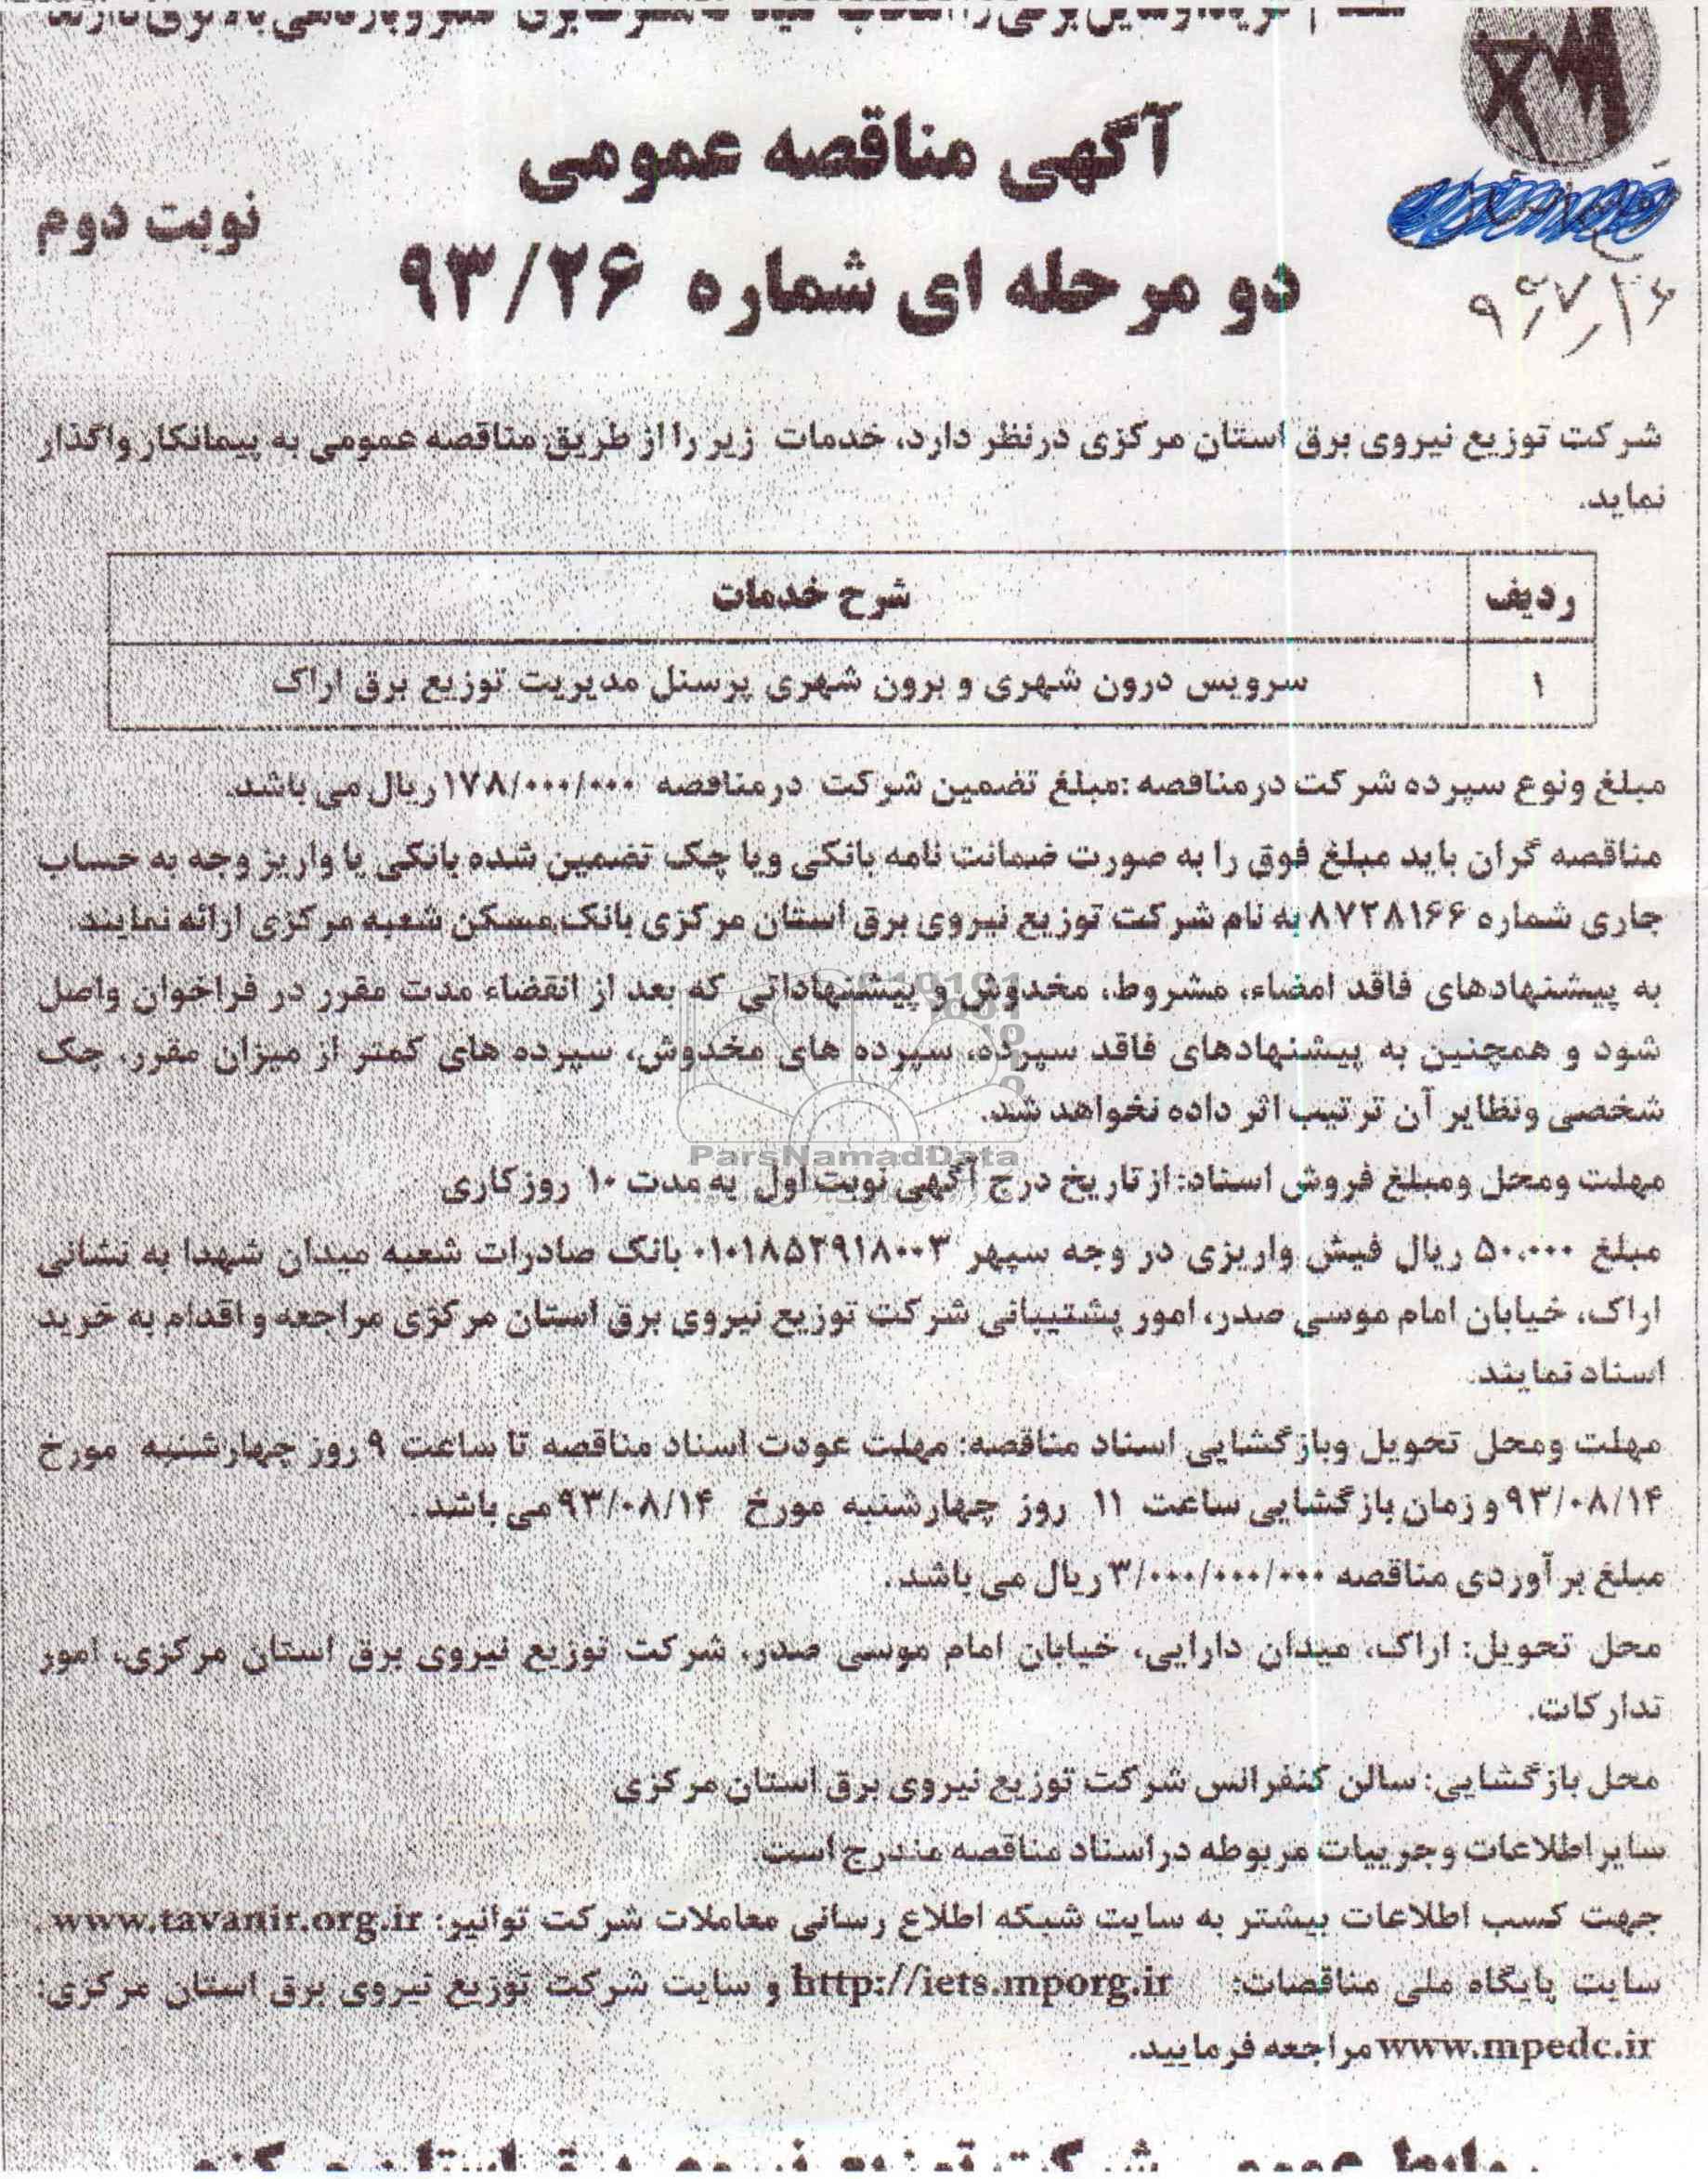 آگهی مناقصه عمومی
نوبت دوم
دو مرحله ای شماره ۹۳/۲۶
شرکت توزیع نیروی برق استان مرکزی درنظر دارد، خدمات زیر را از طریق مناقصه عمومی به پیمانکار واگذار
نماید.
ردیف شرح خدمات
۱ سرویس درون شهری و برون شهری پرسنل مدیریت توزیع برق اراک
مبلغ ونوع سپرده شرکت درمناقصه :مبلغ تضمین شرکت درمناقصه ۱۷۸/۰۰۰/۰۰۰ ریال می باشد.
مناقصه گران باید مبلغ فوق را به صورت ضمانت نامه بانکی ویا چک تضمین شده بانکی یا واریز وجه به حساب
جاری شماره ۸۷۲۸۱۶۶ به نام شرکت توزیع نیروی برق استان مرکزی بانک مسکن شعبه مرکزی ارائه نمایند.
به پیشنهادهای فاقد امضاء، مشروط، مخدوش و پیشنهاداتی که بعد از انقضاء مدت مقرر در فراخوان واصل
شود و همچنین به پیشنهادهای فاقد سپرده، سپرده های مخدوش، سپرده های کمتر از میزان مقرر، چک
شخصی ونظایر آن ترتیب اثر داده نخواهد شد.
ParsNamadData
مهلت ومحل ومبلغ فروش اسناد: از تاریخ درج آگهی نوبت اول به مدت ۱۰ روزکاری
مبلغ ۵۰،۰۰۰ ریال فیش واریزی در وجه سپهر ۰۱۰۱۸۵۲۹۱۸۰۰۳ بانک صادرات شعبه میدان شهدا به نشانی
اراک، خیابان امام موسی صدر، امور پشتیبانی شرکت توزیع نیروی برق استان مرکزی مراجعه و اقدام به خرید
اسناد نمایند.
مهلت ومحل تحویل وبازگشایی اسناد مناقصه: مهلت عودت اسناد مناقصه تا ساعت ۹ روز چهارشنبه مورخ
۹۳/۰۸/۱۴ و زمان بازگشایی ساعت ۱۱ روز چهارشنبه مورخ ۹۳/۰۸/۱۴ می باشد.
مبلغ برآوردی مناقصه ۳/۰۰۰/۰۰۰/۰۰۰ ریال می باشد.
محل تحویل: اراک، میدان دارایی، خیابان امام موسی صدر، شرکت توزیع نیروی برق استان مرکزی، امور
تدارکات.
محل بازگشایی: سالن کنفرانس شرکت توزیع نیروی برق استان مرکزی
سایر اطلاعات وجرییات مربوطه دراسناد مناقصه مندرج است.
جهت کسب اطلاعات بیشتر به سایت شبکه اطلاع رسانی معاملات شرکت توانیر: www.tavanir.org.ir
سایت پایگاه ملی مناقصات: http://iets.mporg.ir و سایت شرکت توزیع نیروی برق استان مرکزی:
www.mpedc.ir مراجعه فرمایید.